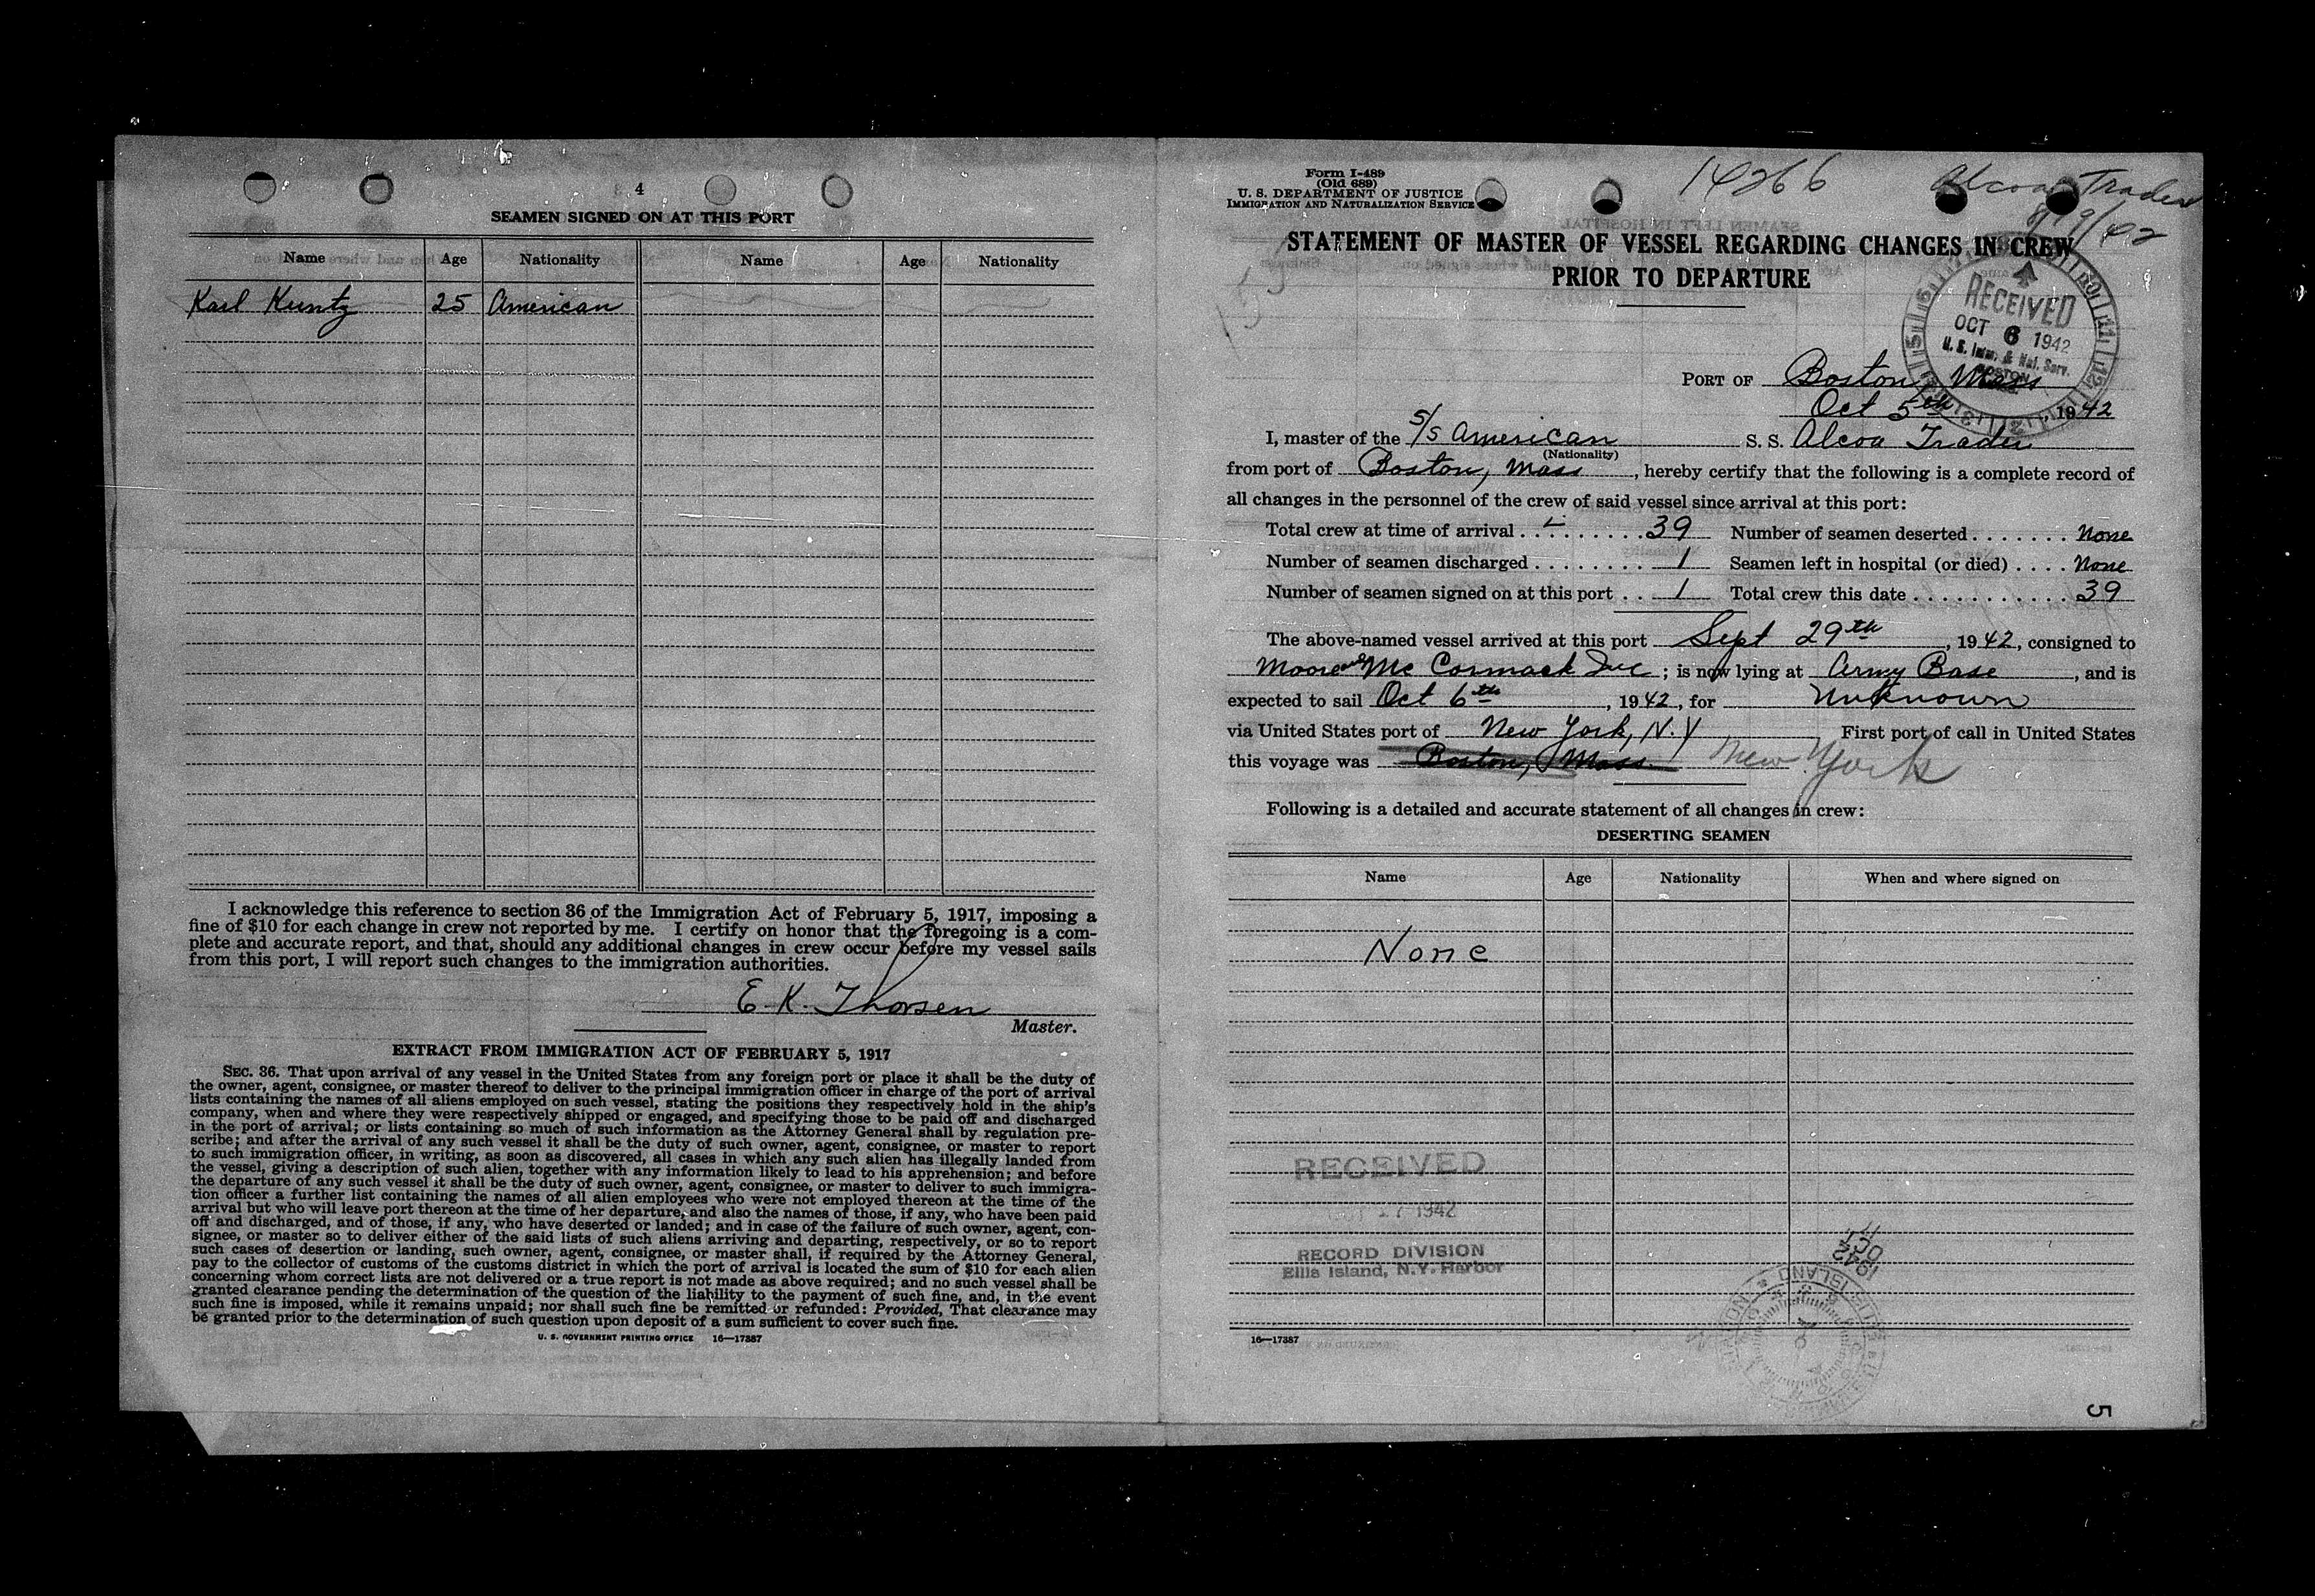 4
SEAMEN SIGNED ON AT THIS PORT
Name Age Nationality Name Age Nationality
Karl Kuntz 25 American
I acknowledge this reference to section 36 of the Immigration Act of February 5, 1917, imposing a
fine of $10 for each change in crew not reported by me. I certify on honor that the foregoing is a com-
plete and accurate report, and that, should any additional changes in crew occur before my vessel sails
from this port, I will report such changes to the immigration authorities.
E. K. Thorsen
Master.
EXTRACT FROM IMMIGRATION ACT OF FEBRUARY 5, 1917
SEC. 36. That upon arrival of any vessel in the United States from any foreign port or place it shall be the duty of
the owner, agent, consignee, or master thereof to deliver to the principal immigration officer in charge of the port of arrival
lists containing the names of all aliens employed on such vessel, stating the positions they respectively hold in the ship's
company, when and where they were respectively shipped or engaged, and specifying those to be paid off and discharged
in the port of arrival; or lists containing so much of such information as the Attorney General shall by regulation pre-
scribe; and after the arrival of any such vessel it shall be the duty of such owner, agent, consignee, or master to report
to such immigration officer, in writing, as soon as discovered, all cases in which any such alien has illegally landed from
the vessel, giving a description of such alien, together with any information likely to lead to his apprehension; and before
the departure of any such vessel it shall be the duty of such owner, agent, consignee, or master to deliver to such immigra-
tion officer a further list containing the names of all alien employees who were not employed thereon at the time of the
arrival but who will leave port thereon at the time of her departure, and also the names of those, if any, who have been paid
off and discharged, and of those, if any, who have deserted or landed; and in case of the failure of such owner, agent, con-
signee, or master so to deliver either of the said lists of such aliens arriving and departing, respectively, or so to report
such cases of desertion or landing, such owner, agent, consignee, or master shall, if required by the Attorney General,
pay to the collector of customs of the customs district in which the port of arrival is located the sum of $10 for each alien
concerning whom correct lists are not delivered or a true report is not made as above required; and no such vessel shall be
granted clearance pending the determination of the question of the liability to the payment of such fine, and, in the event
such fine is imposed, while it remains unpaid; nor shall such fine be remitted or refunded: Provided, That clearance may
be granted prior to the determination of such question upon deposit of a sum sufficient to cover such fine.
U. S. GOVERNMENT PRINTING OFFICE 16—17387
Form I-489
(Old 689)
U. S. DEPARTMENT OF JUSTICE
IMMIGRATION AND NATURALIZATION SERVICE
14266
Alcoa Trader
8/9/42
STATEMENT OF MASTER OF VESSEL REGARDING CHANGES IN CREW
PRIOR TO DEPARTURE
RECEIVED
OCT 6 1942
U. S. Imm. & Nat. Serv.
BOSTON
PORT OF Boston, Mass
Oct 5th, 1942
I, master of the S/S American S. S. Alcoa Trader
(Nationality)
from port of Boston, Mass, hereby certify that the following is a complete record of
all changes in the personnel of the crew of said vessel since arrival at this port:
Total crew at time of arrival 39 Number of seamen deserted None
Number of seamen discharged 1 Seamen left in hospital (or died) None
Number of seamen signed on at this port 1 Total crew this date 39
The above-named vessel arrived at this port Sept 29th, 1942, consigned to
Moore and Mc Cormack Inc; is now lying at Army Base, and is
expected to sail Oct 6th, 1942, for Unknown
via United States port of New York, N.Y First port of call in United States
this voyage was Boston, Mass New York
Following is a detailed and accurate statement of all changes in crew:
DESERTING SEAMEN
Name Age Nationality When and where signed on
None
RECEIVED
17 1942
RECORD DIVISION
Ellis Island, N.Y. Harbor
1942
OCT
17
16—17387
5